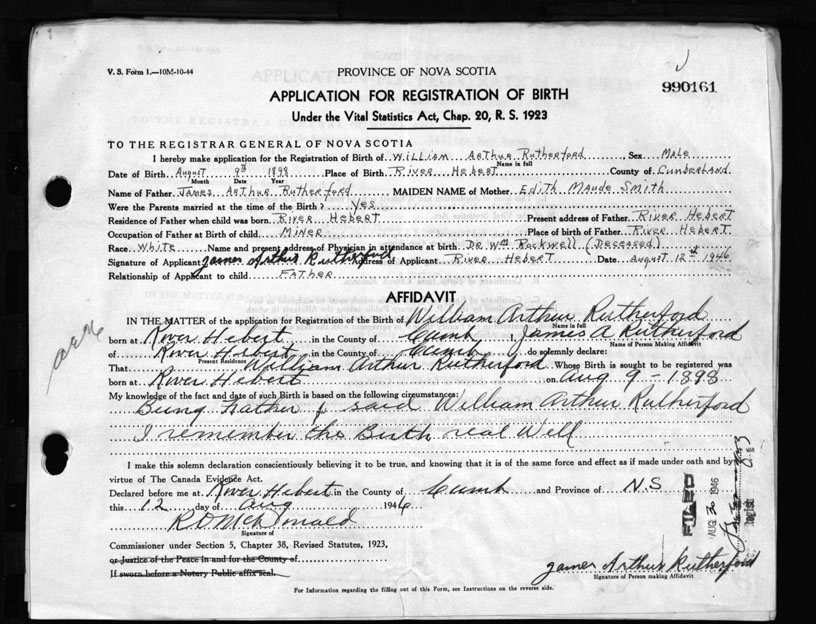 V. S. Form 1.—10M-10-44
PROVINCE OF NOVA SCOTIA
990161
APPLICATION FOR REGISTRATION OF BIRTH
Under the Vital Statistics Act, Chap. 20, R. S. 1923
TO THE REGISTRAR GENERAL OF NOVA SCOTIA
I hereby make application for the Registration of Birth of William Arthur Rutherford, Sex Male
Name in full
Date of Birth August 9th 1898 Place of Birth River Hebert County of Cumberland
Month Date Year
Name of Father James Arthur Rutherford MAIDEN NAME of Mother Edith Maude Smith
Were the Parents married at the time of the Birth? Yes
Residence of Father when child was born River Hebert Present address of Father River Hebert
Occupation of Father at Birth of child Miner Place of birth of Father River Hebert
Race White Name and present address of Physician in attendance at birth Dr Wm Rockwell (Deceased)
Signature of Applicant James Arthur Rutherford Address of Applicant River Hebert Date August 12th 1946
Relationship of Applicant to child Father
AFFIDAVIT
IN THE MATTER of the application for Registration of the Birth of William Arthur Rutherford
Name in full
born at River Hebert in the County of Cumb I, James A Rutherford
Name of Person Making Affidavit
of River Hebert in the County of Cumb do solemnly declare:
Present Residence
That William Arthur Rutherford Whose Birth is sought to be registered was
born at River Hebert on Aug 9 - 1898
My knowledge of the fact and date of such Birth is based on the following circumstances:
Being Father of said William Arthur Rutherford
I remember the Birth real Well
I make this solemn declaration conscientiously believing it to be true, and knowing that it is of the same force and effect as if made under oath and by
virtue of The Canada Evidence Act.
Declared before me at River Hebert in the County of Cumb and Province of N.S
this 12 day of Aug 1946
R D McDonald
Signature of
Commissioner under Section 5, Chapter 38, Revised Statutes, 1923,
or Justice of the Peace in and for the County of
If sworn before a Notary Public affix seal.
James Arthur Rutherford
Signature of Person making Affidavit
For Information regarding the filling out of this Form, see Instructions on the reverse side.
FILED
AUG 30 1946